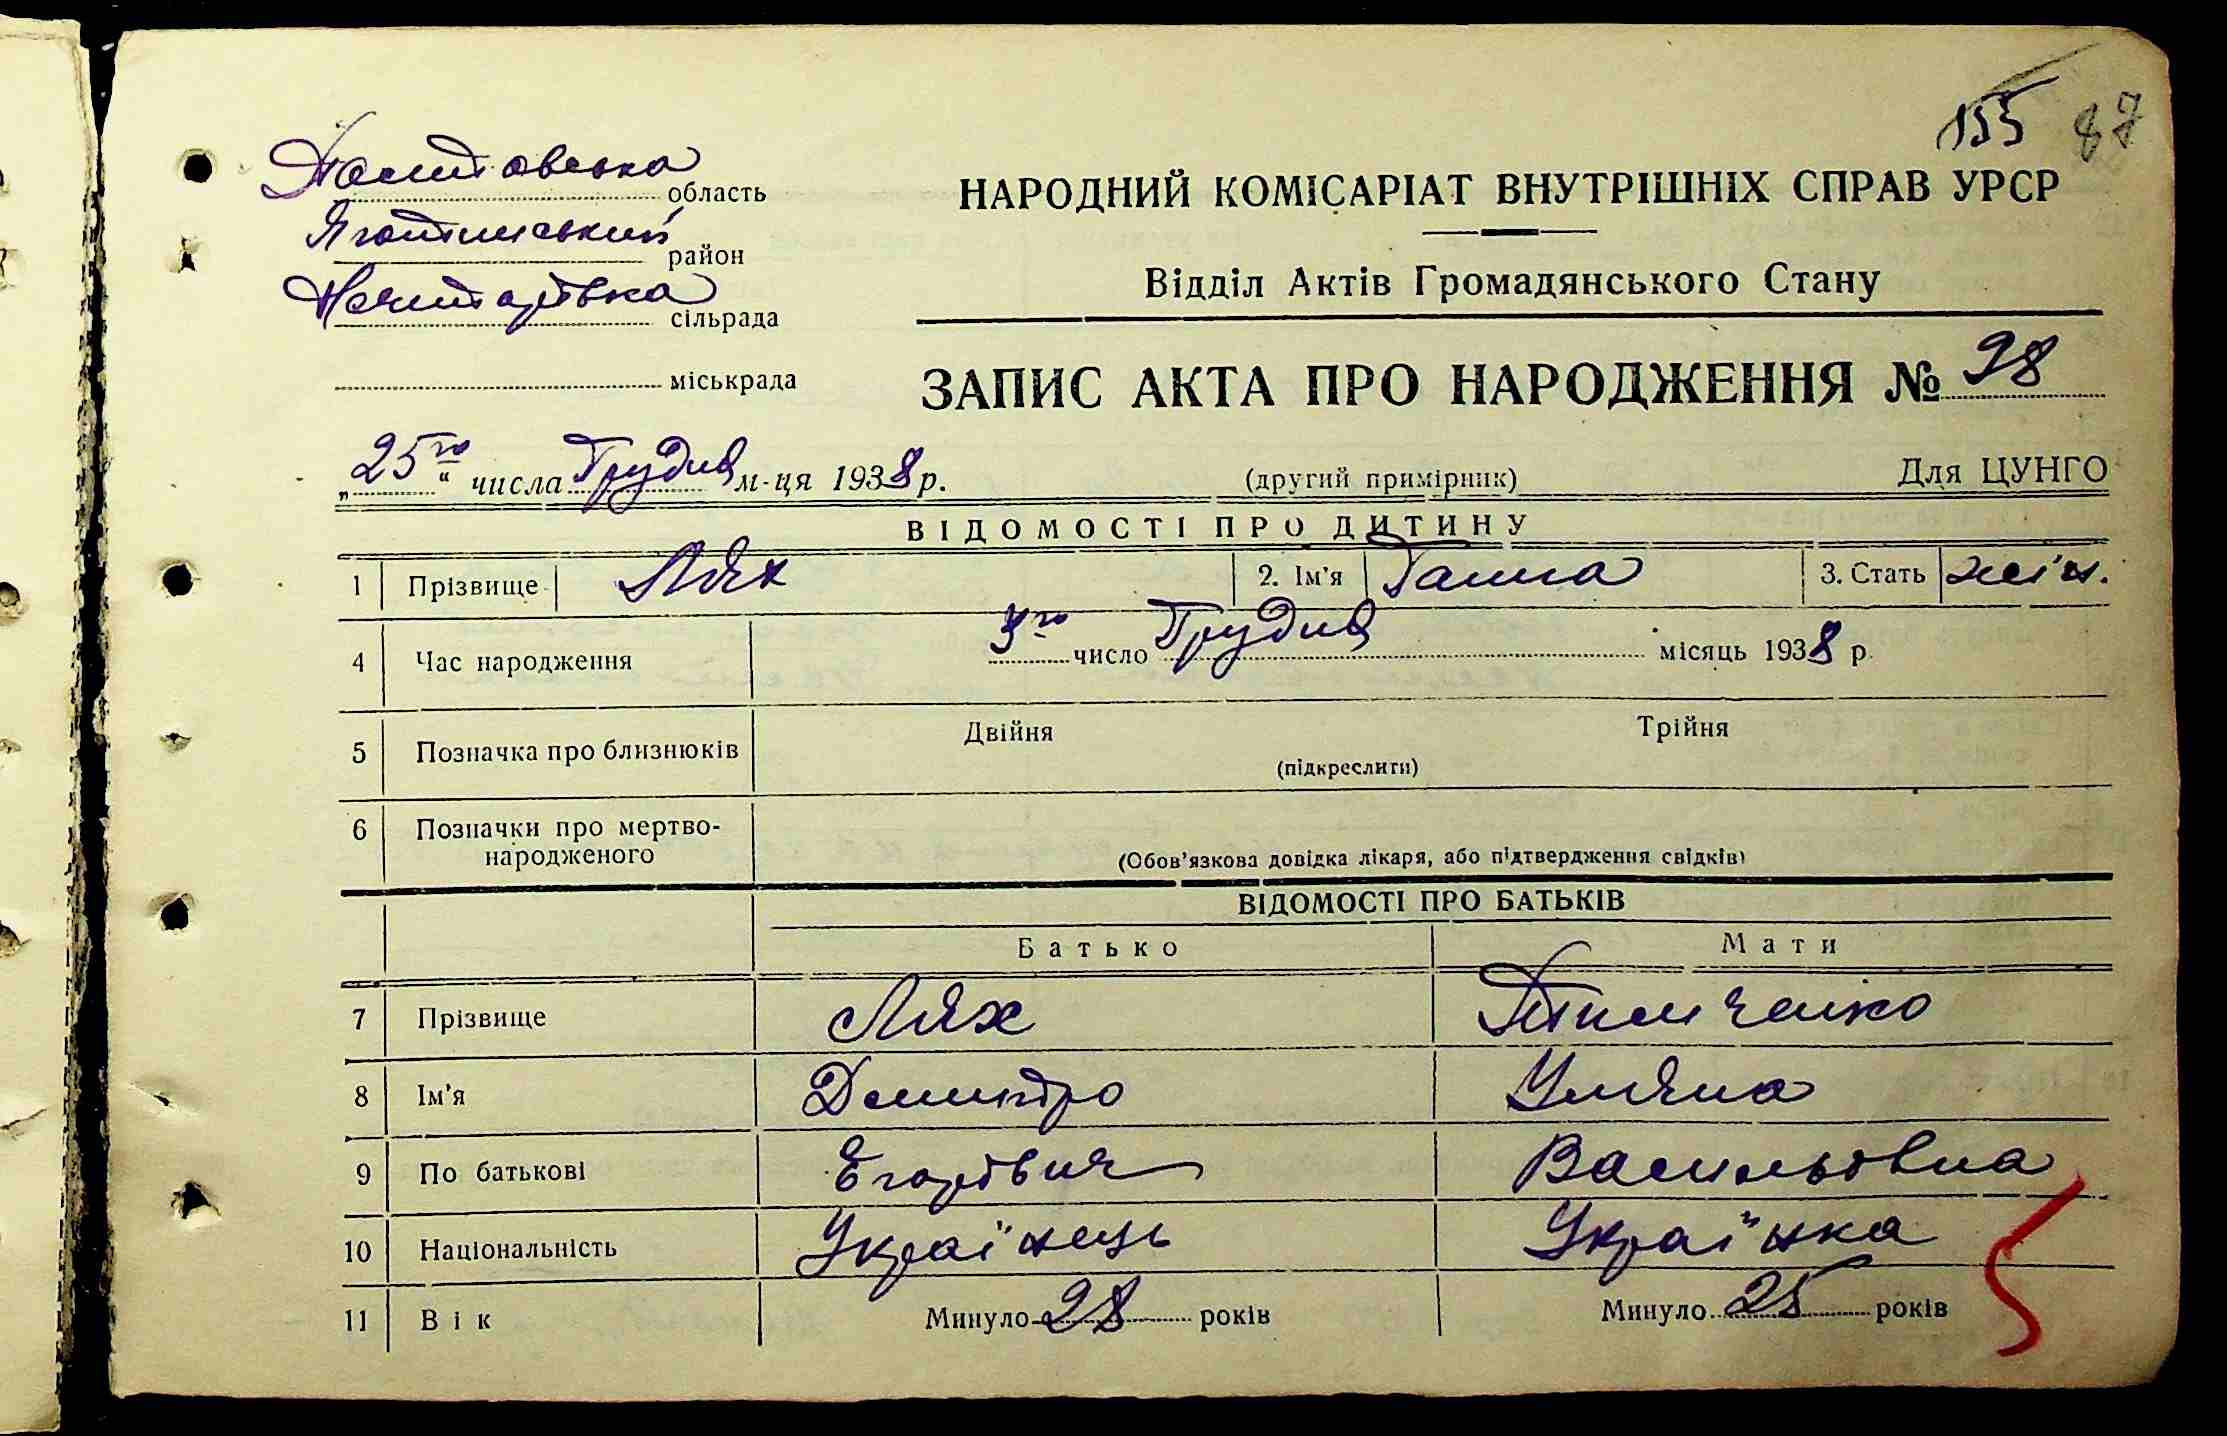 155 87
Полтовська область
Яготинський район
Нечипорівка сільрада
міськрада
НАРОДНИЙ КОМІСАРІАТ ВНУТРІШНІХ СПРАВ УРСР
Відділ Актів Громадянського Стану
ЗАПИС АКТА ПРО НАРОДЖЕННЯ № 98
„25го“ числа Грудня м-ця 1938 р. (другий примірник) Для ЦУНГО
ВІДОМОСТІ ПРО ДИТИНУ
1 Прізвище Лях 2. Ім'я Ганна 3. Стать жін.
4 Час народження 3го число Грудня місяць 1938 р.
5 Позначка про близнюків Двійня Трійня
(підкреслити)
6 Позначки про мертво-
народженого (Обов'язкова довідка лікаря, або підтвердження свідків)
ВІДОМОСТІ ПРО БАТЬКІВ
Батько Мати
7 Прізвище Лях Тимченко
8 Ім'я Демитро Уляна
9 По батькові Егорівич Васильовна
10 Національність Украінець Украінка
11 Вік Минуло 28 років Минуло 25 років